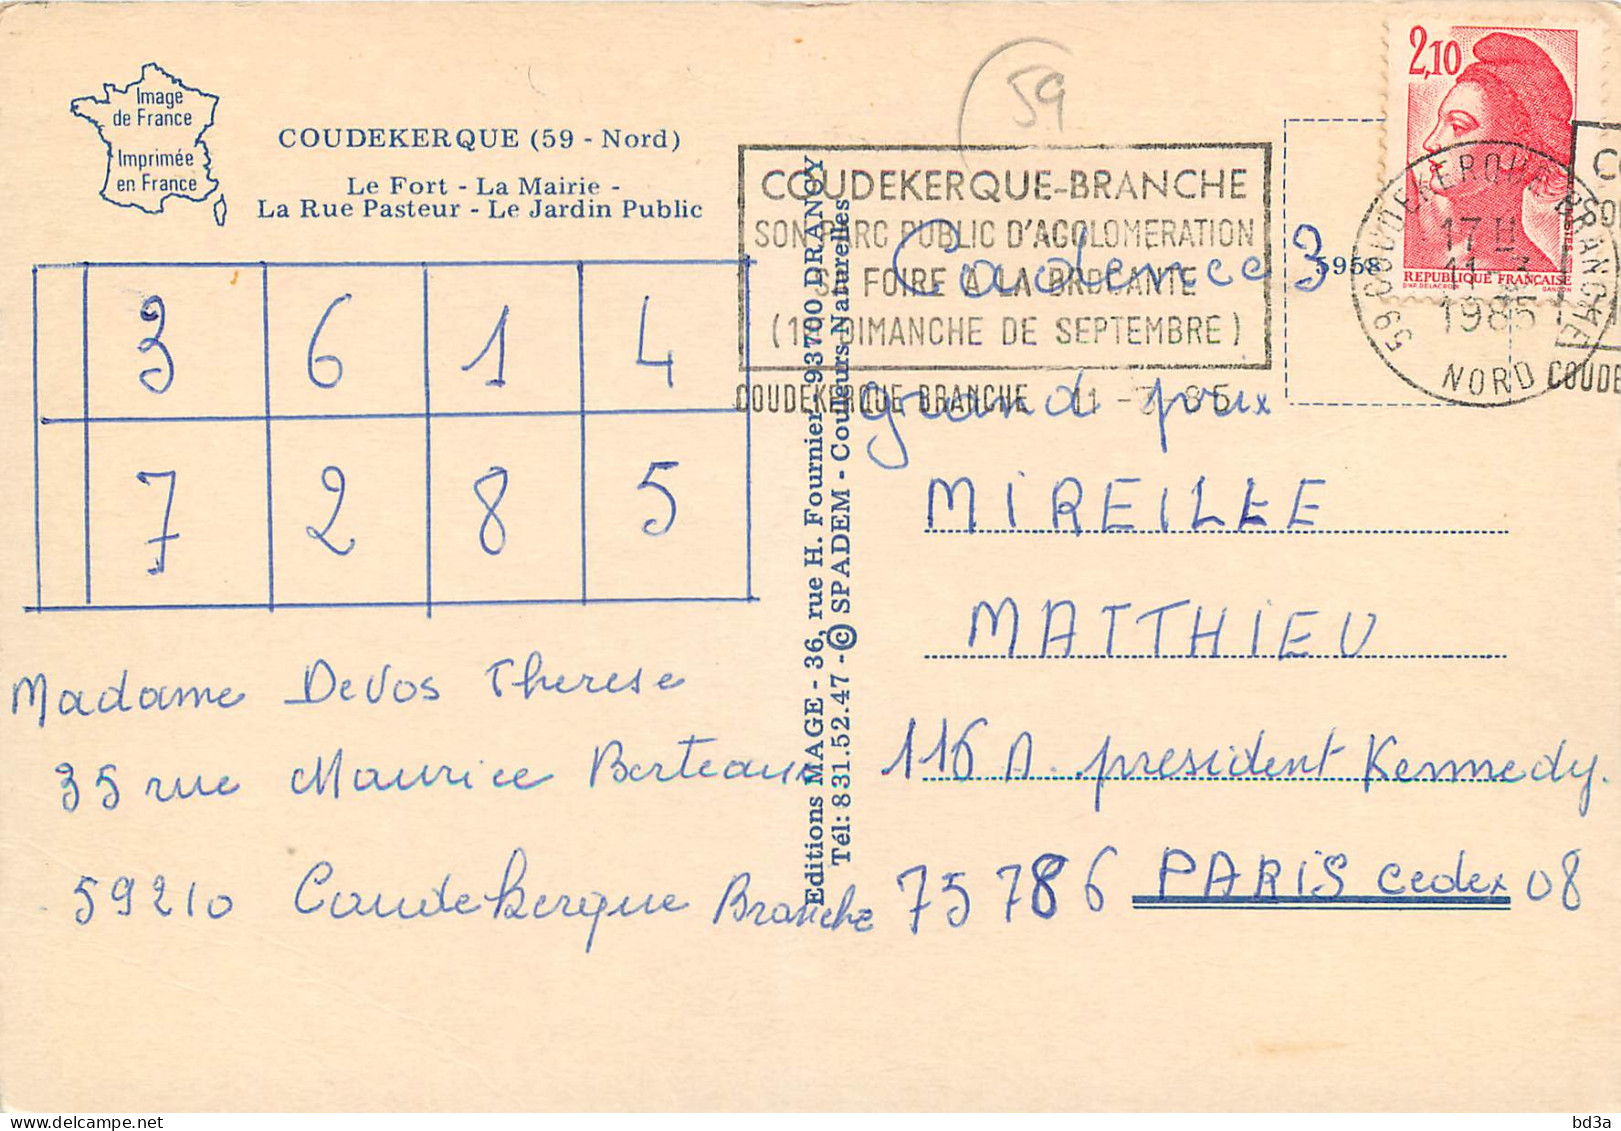 Image
de France
Imprimée
en France
COUDEKERQUE (59 - Nord)
Le Fort - La Mairie -
La Rue Pasteur - Le Jardin Public
3 6 1 4
7 2 8 5
Madame Devos Therese
35 rue Maurice Berteaux
59210 Coudekerque Branche
Editions MAGE - 36, rue H. Fournier - 93700 DRANCY
Tél: 831.52.47 - © SPADEM - Couleurs Naturelles
59
COUDEKERQUE-BRANCHE
SON PARC PUBLIC D'AGGLOMERATION
SA FOIRE A LA BROCANTE
DIMANCHE DE SEPTEMBRE)
COUDEKERQUE BRANCHE 11-3-85
5958
2,10
REPUBLIQUE FRANÇAISE
D'AP. DELACROIX GANDON
59 COUDEKERQUE BRANCHE
17 H
11-3
1985
NORD
COUDE
Cadence 3
grand prix
MIREILLE
MATTHIEU
116 A. president Kennedy.
75786 PARIS cedex 08
bd3a